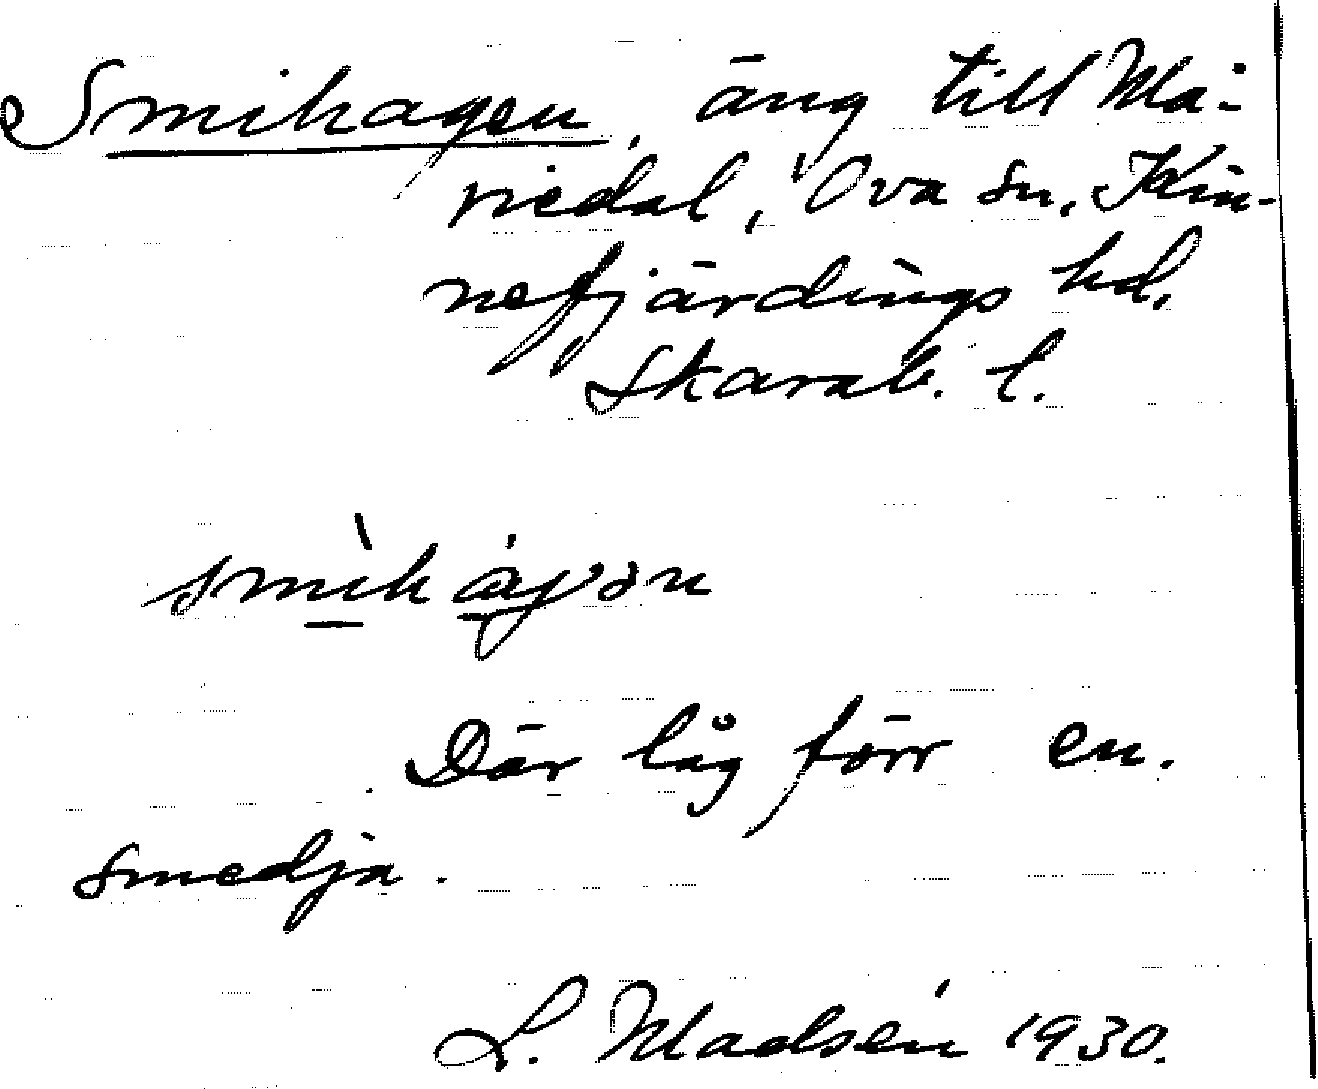 Smihagen, äng till Ma-
riedal, Ova sn, Kin-
nefjärdings hd,
Skarab. l.
Där låg förr en
smedja.
L. Madsén 1930.